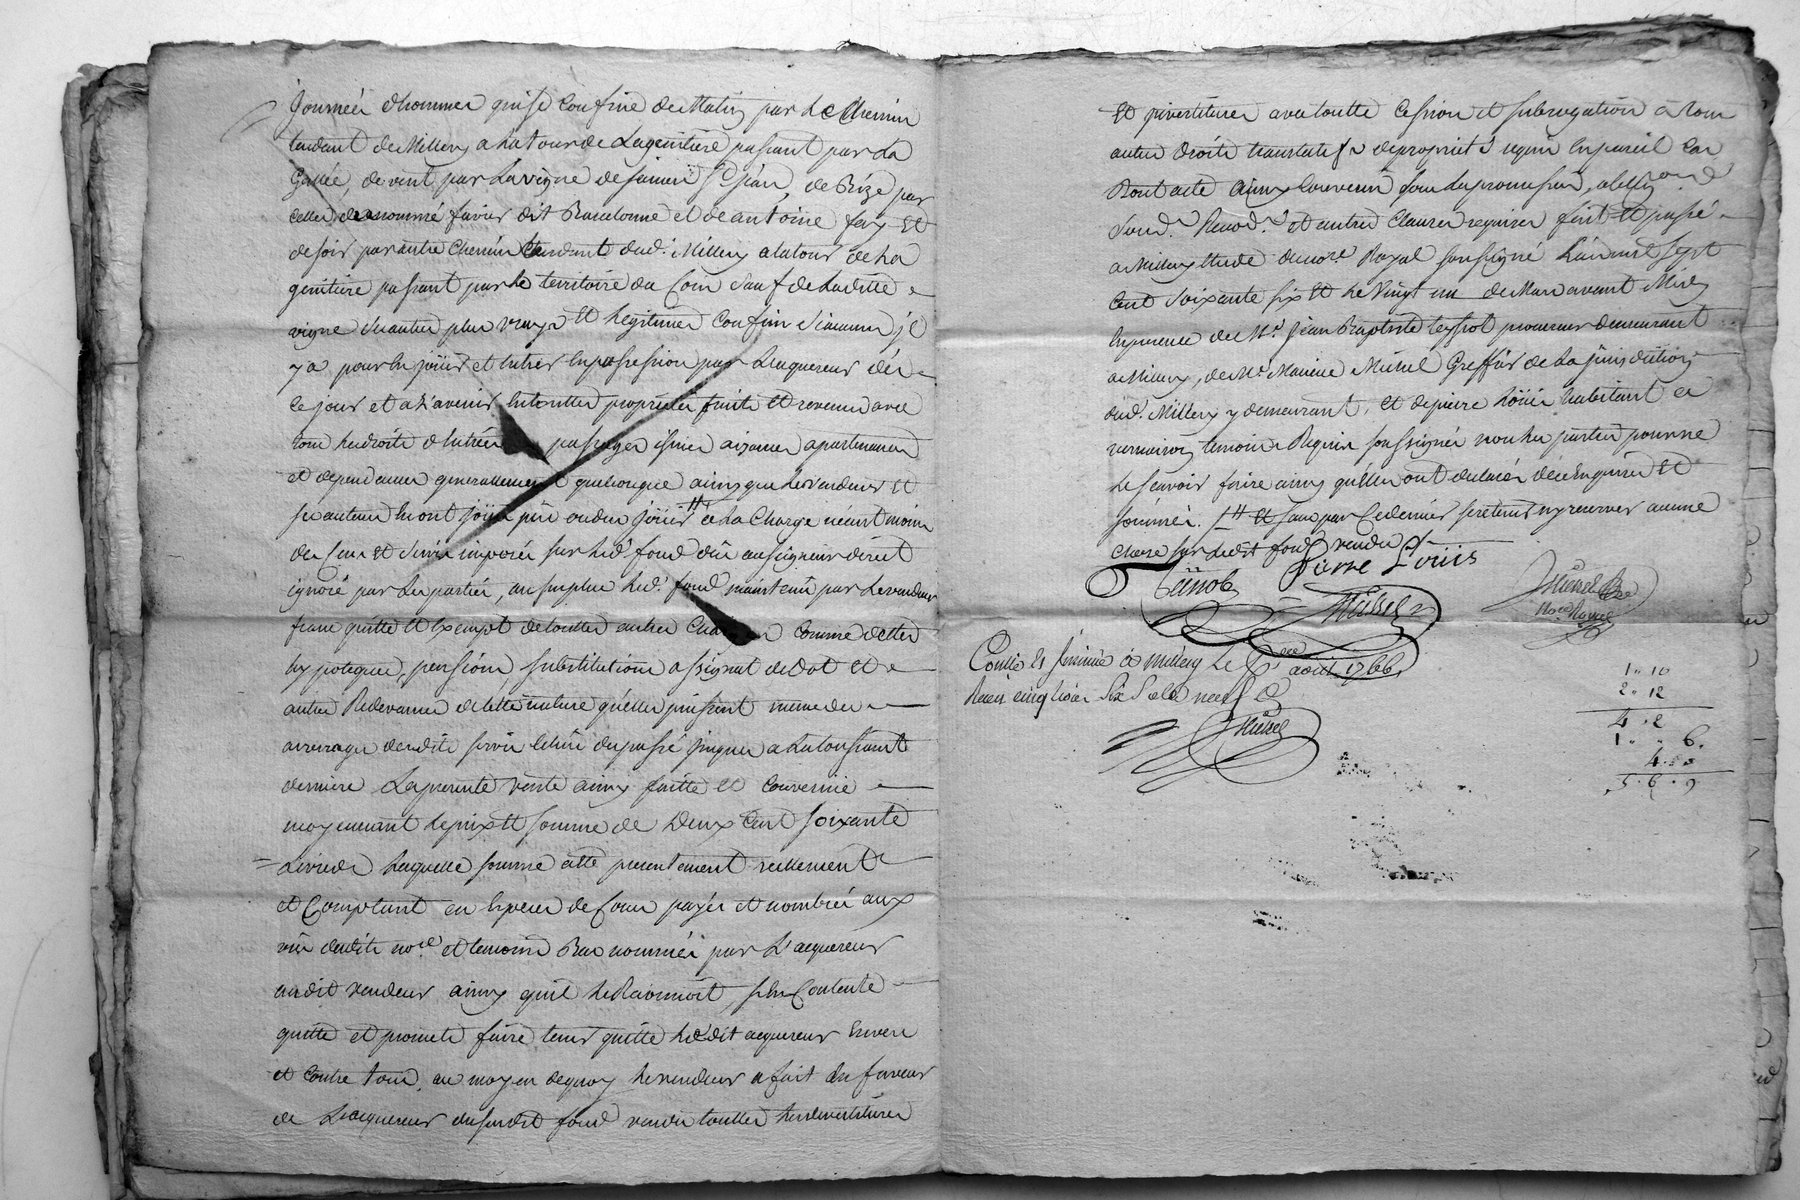 Journée d'hommes qui se confine de Matin par Le Chemin
tendant de Millery a La tour de Lagenitiere passant par La
Gallée, de vent par La vigne de sieur St jéan, de Bize par
celles de nommé favier dit Barcelonne et de antoine fay Et
de soir par autre Chemin tendant dud. Millery a latour de La
genitiere passant par le territoire du Coin Sauf de Laditte
vigne ses autres plus vrays Et Legitimes Confins si aucuns jl
y a pour En joüir et Entrer En possession par Lacquereur dés
Ce jour et a L'avenir En touttes proprietés fruits Et revenus avec
tous Les droits d'Entrées passages isues aizances apartenances
et dependances generallement quelconques ainsy que Le vendeur Et
ses auteurs En ont joüi pû ou deu joüir a La Charge néant moins
des Cens Et Servis imposés sur Led. fond dûs au seigneur direct
ignoré par Les parties, au surplus Led. fond maintenu par Le vendeur
franc quitte Et Exempt de touttes autres Charges Comme dettes
hypoteques, pensions, substitutions assignat de dot Et
autres Redevances de Cette nature qu'elles puissent meme des
arrerages desdits servis Cens du passé jusques a La toussaint
derniere La presente vente ainsy faitte Et Convenüe
moyennant Le prix Et somme de Deux Cent soixante
Livres Laquelle somme a été presentement réellement
et Comptant en Especes de Cours payés et nombrée aux
vûe desdits nore. et temoins Bas nommés par L'acquereur
audit vendeur ainsy quil Le Reconnoit, s'En Contente
quitte et promets faire tenir quitte Ledit acquereur Envers
et Contre tous, au moyen dequoy Le vendeur a fait En faveur
de Lacquereur du susdit fond vendu touttes Les devestitures
Et jnvestitures avec toutte Cession et subrogation a tous
autres droits translatifs de proprieté requis En pareil Cas
Dont acte ainsy Convenu sous Les promesses, oblig.ons
Soum.s Renon.s et autres Clauses requises fait Et passé
a Millery Etude de nore. Royal soussigné L'an mil sept
Cent Soixante six Et Le Vingt un de Mars avant Midy
En presence de Me. Jean Baptiste teyssot procureur demeurant
a Millery, de Me. Maurice Michel Greffier de La jurisdiction
dud. Millery y demeurant, Et de pierre hôtier habitant a
vernaison temoins Requis soussignés non Les parties pour ne
Le sçavoir faire ainsy qu'elles ont declaré de ce Enquises Et
sommés. Et sans par Ce dernier se retenir ny reserver aucune
chose sur Ledit fond vendu
Pierre Louis
Michel
Nore. Royal
Contlé Et Jnsinué à Millery Le 1er aout 1766
Reçu cinq livres Six Sols neuf d
Michel
1 " 10
2 " 12
4 . 2
1 " " 6.
4 . "
5 . 6 . 9